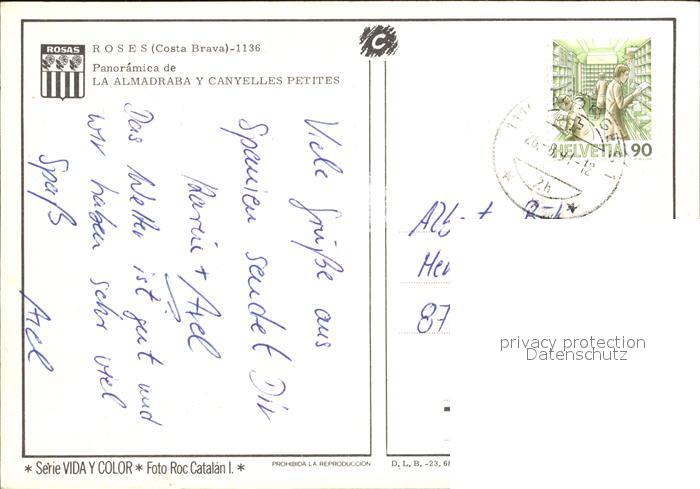 ROSAS
ROSES (Costa Brava)-1136
Panorámica de
LA ALMADRABA Y CANYELLES PETITES
C
Viele Grüße aus
Spanien sendet Dir
Karin + Axel
Das Wetter ist gut und
wir haben sehr viel
Spaß
Axel
HELVETIA 90
87
privacy protection
Datenschutz
* Serie VIDA Y COLOR * Foto Roc Catalán I. *
PROHIBIDA LA REPRODUCCION
D. L. B. -23, 68